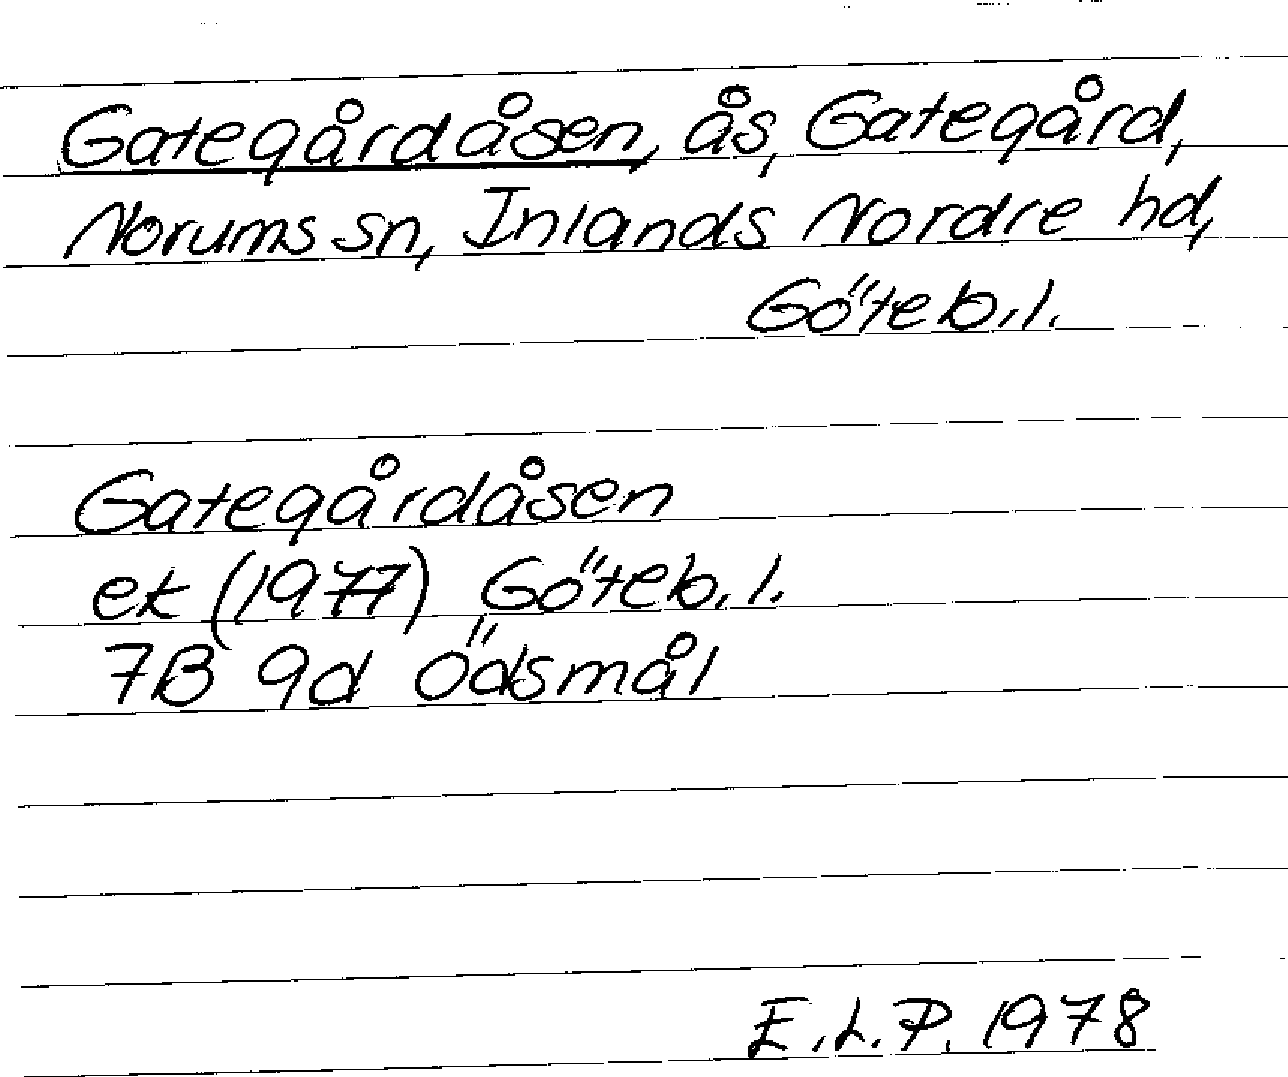 Gategårdåsen, ås, Gategård,
Norums sn, Inlands Nordre hd,
Göteb.l.
Gategårdåsen
ek (1977) Göteb.l.
7B 9d Ödsmål
E.L.P. 1978